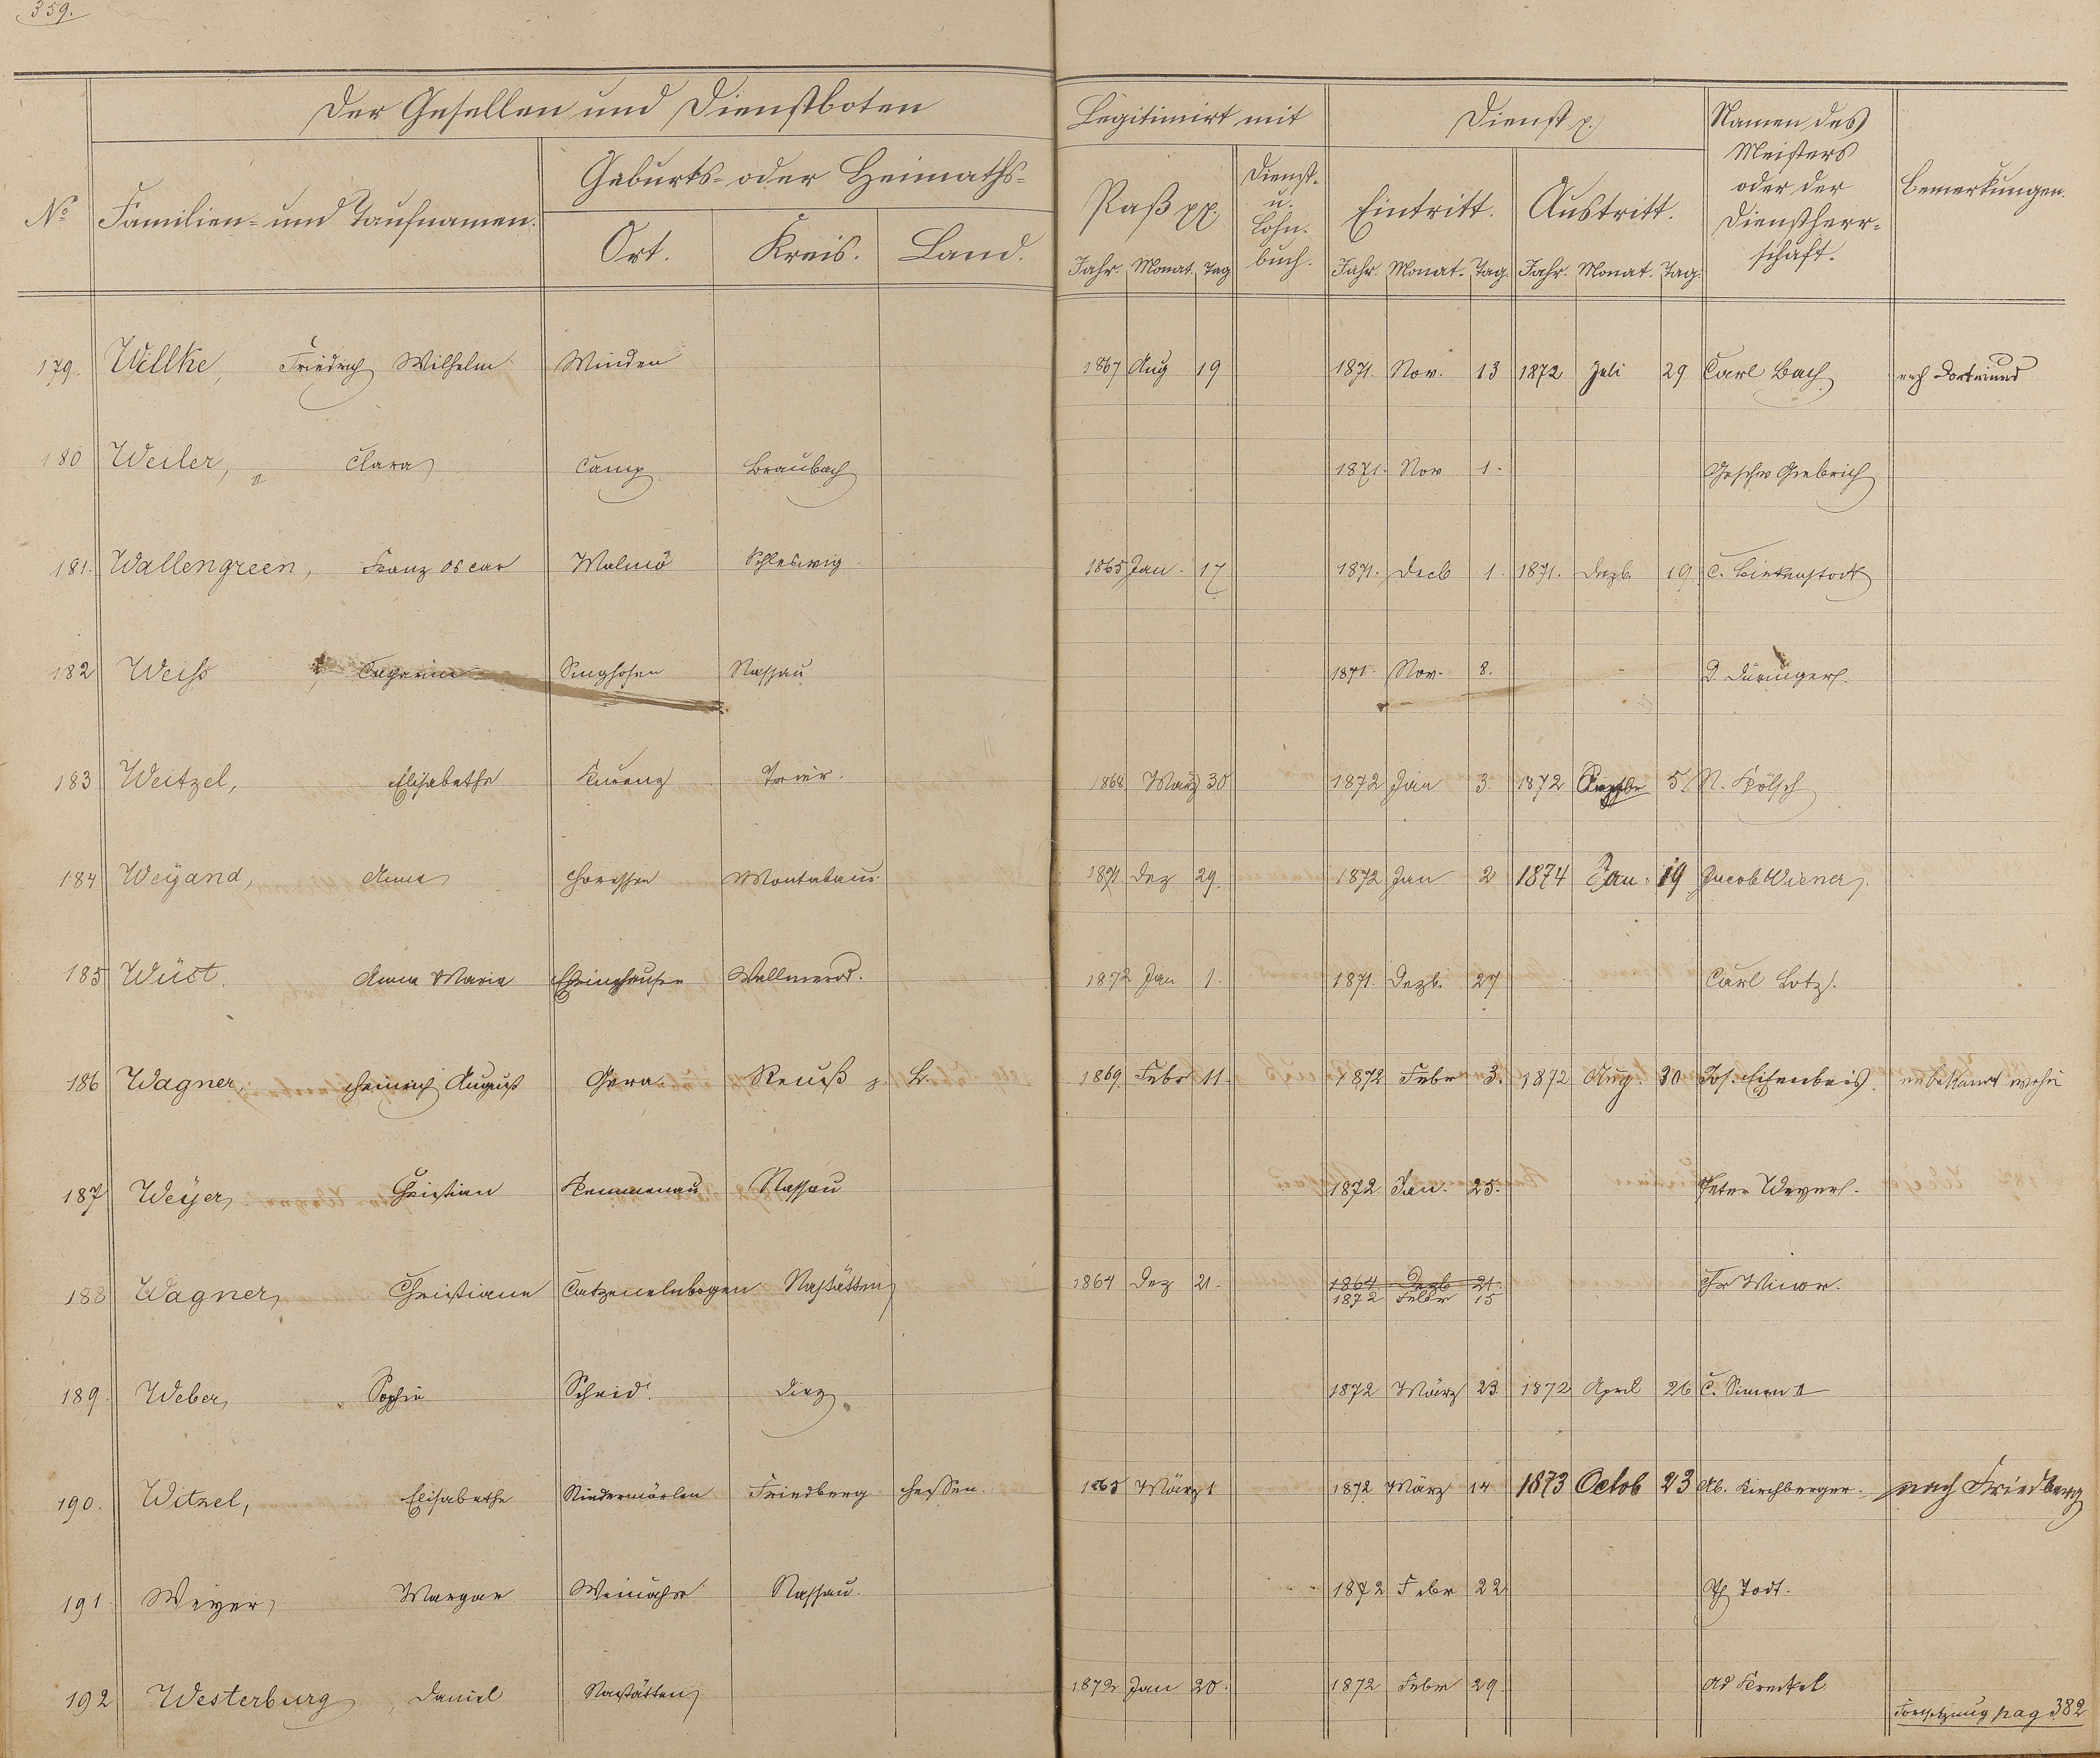 359.
Der Gesellen und Dienstboten
Legitimirt mit
Dienst p.
Namen des
Meisters
oder der
Dienstherr-
schaft.
Bemerkungen.
No
Familien- und Taufnamen.
Geburts- oder Heimaths-
Ort. Kreis. Land.
Paß pp.
Jahr. Monat. Tag
Dienst-
u.
Lohn-
buch.
Eintritt. Austritt.
Jahr. Monat. Tag. Jahr. Monat. Tag.
179. Willke, Friedrich Wilhelm Minden 1867 Aug 19 1871. Nov. 13 1872 Juli 29 Carl Bach nach Dortmund
180 Weiler, " Clara Camp Braubach 1871. Nov 1. Geschw
181. Wallengreen, Franz Oscar Malmö Schleswig 1865 Jan. 17 1871. Decb 1. 1871. Dezb. 19. C. Birkenstock
182 Weiss, Catharine Singhofen Nassau 1871. Nov. 8. D. Düringer.
183 Weitzel, Elisabethe Kürenz Trier. 1868 März 30 1872 Jan 3. 1872 Septbr 5 N. Kölsch
184 Weyand, Anna Horessen Montabaur 1871. Dez 29. 1872 Jan 2 1874 Jan. 19 Jacob Wiener.
185 Wüst. Anna Maria Ettinghausen Wallmerod. 1872 Jan 1. 1871. Dezb. 27 Carl Lotz.
186 Wagner, Heinrich August Gera. Reuß j. L. 1869. Febr 11. 1872 Febr 3. 1872 Aug. 30 Jos. Eisenbeis. unbekannt wohin
187 Weyer, Christian Kemmenau Nassau 1872 Jan. 25. Peter Weyer.
188 Wagner, Christiane Catzenelnbogen Nastätten 1864 Dez 21. 1864 Dezb 21. Chr Minor.
1872 Febr 15
189. Weber, Sophie Scheid. Diez 1872 März 23 1872 April 26 C. Simon II
190. Witzel, Elisabethe Niedermörlen Friedberg Hessen. 1865 März 1 1872 März 14 1873 Octob 23 Ab. Kirchberger. nach Friedberg
191. Weyer, Margar Weinähr Nassau. 1872 Febr 22. Ph Todt.
192 Westerburg, Daniel Nastätten 1872 Jan 20. 1872 Febr 29. Ad Kreckel.
Fortsetzung pag 382